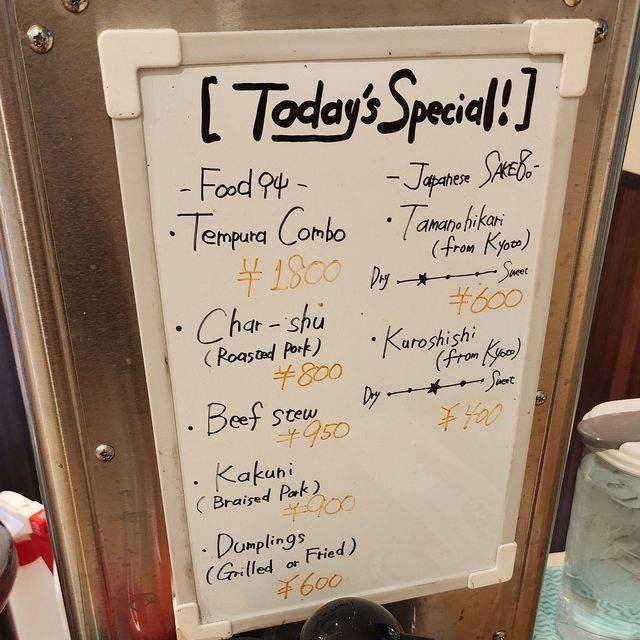 [Today's Special!]
- Food -
・Tempura Combo
¥1800
・Char-shu
(Roasted Pork)
¥800
・Beef stew
¥950
・Kakuni
(Braised Pork)
¥900
・Dumplings
(Grilled or Fried)
¥600
- Japanese SAKE -
・Tamanohikari
(from Kyoto)
Dry Sweet
¥600
・Kuroshishi
(from Kyoto)
Dry Sweet
¥400